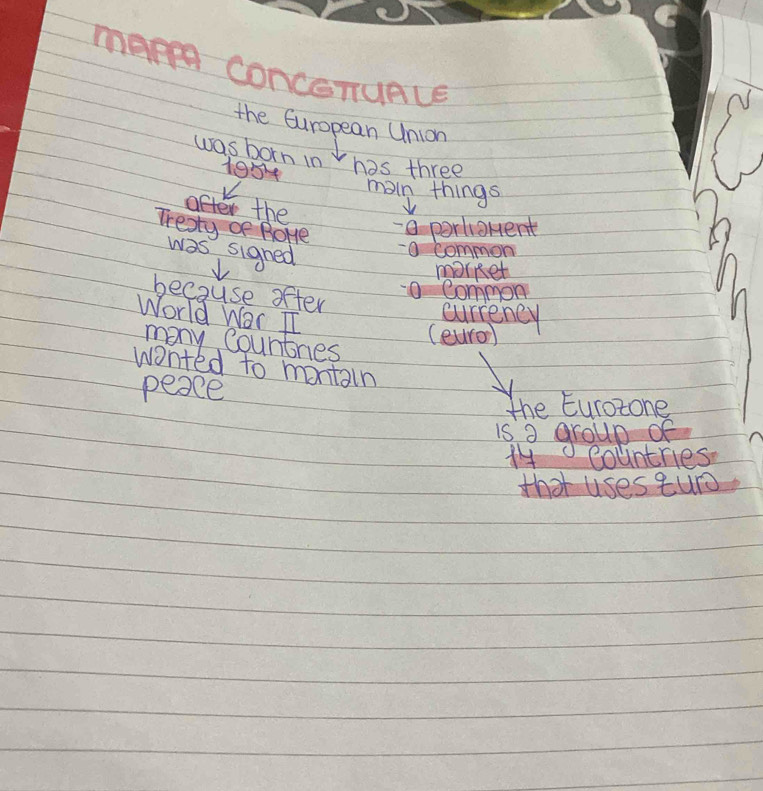 MAPPA CONCETTUALE
the European Union
was born in
1957
after the
Treaty of Rome
was signed
because after
World War II
many Countries
wanted to mantain
peace
has three
main things
-a parliament
-a common
market
-a common
currency
(euro)
the Eurozone
is a group of
14 countries
that uses euro